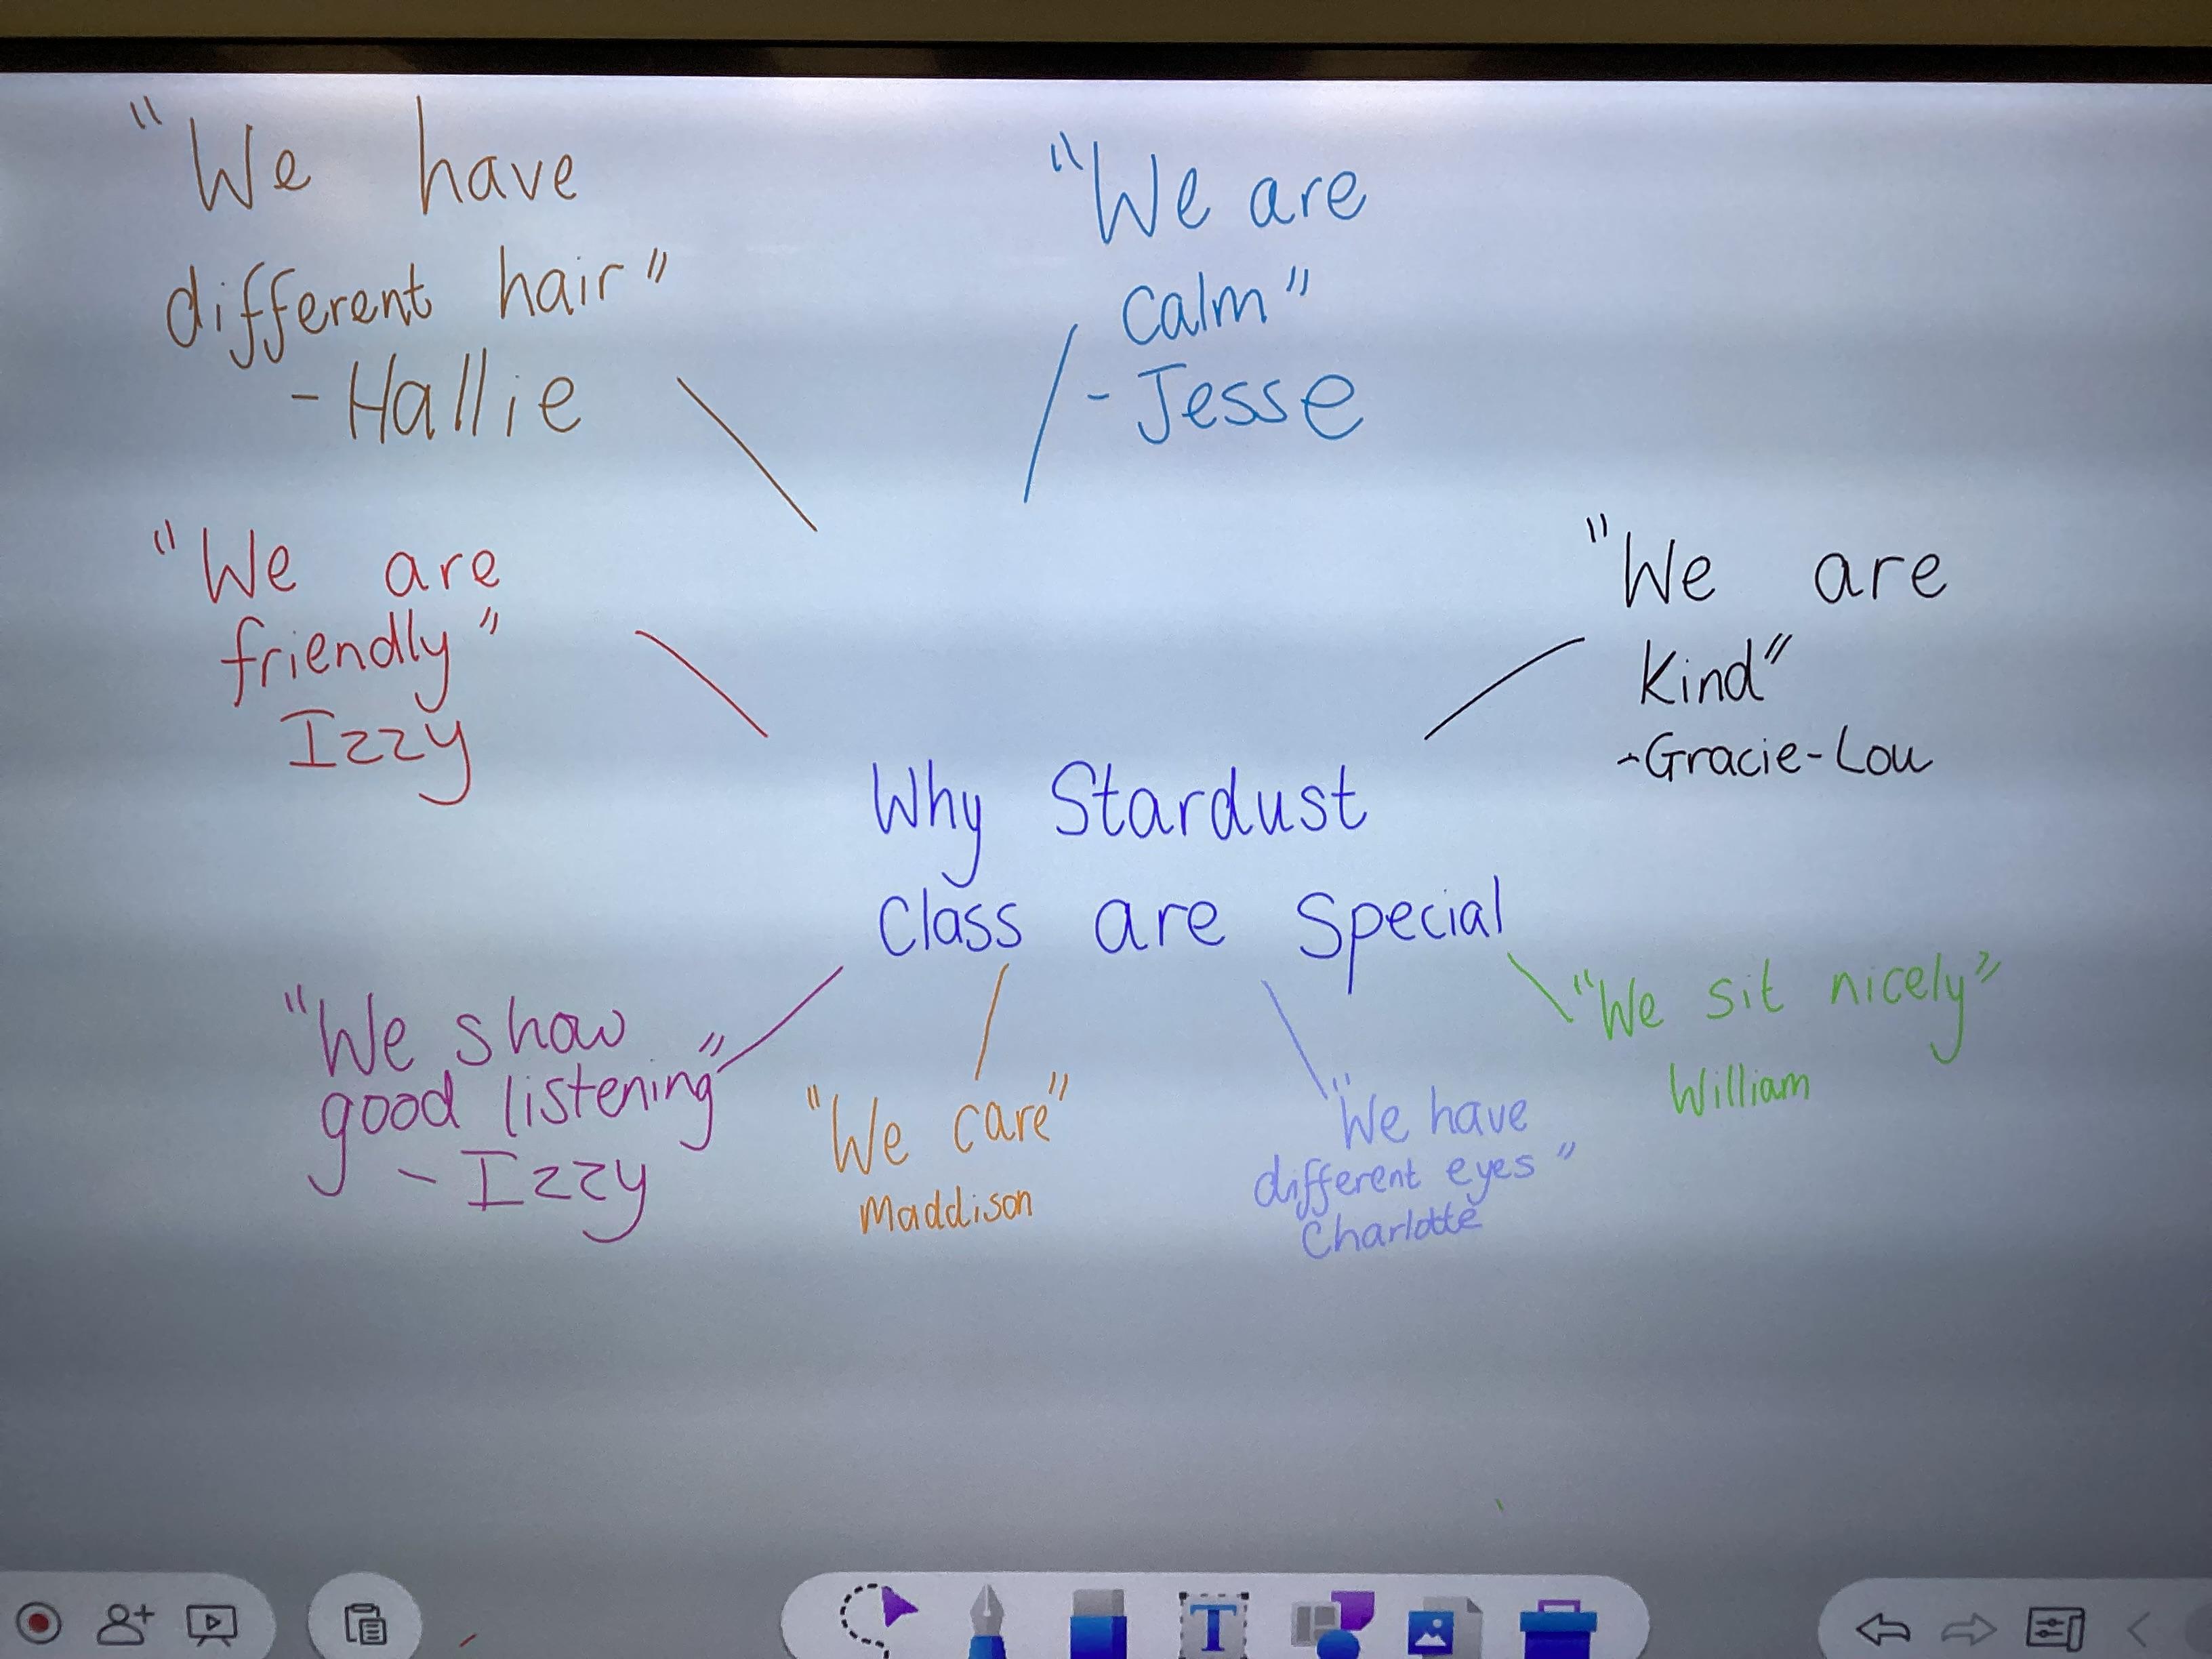 "We have
different hair"
- Hallie
"We are
calm"
- Jesse
"We are
friendly"
Izzy
"We are
kind"
- Gracie-Lou
Why Stardust
class are special
"We show
good listening"
- Izzy
"We care"
Maddison
"We have
different eyes"
Charlotte
"We sit nicely"
William
T